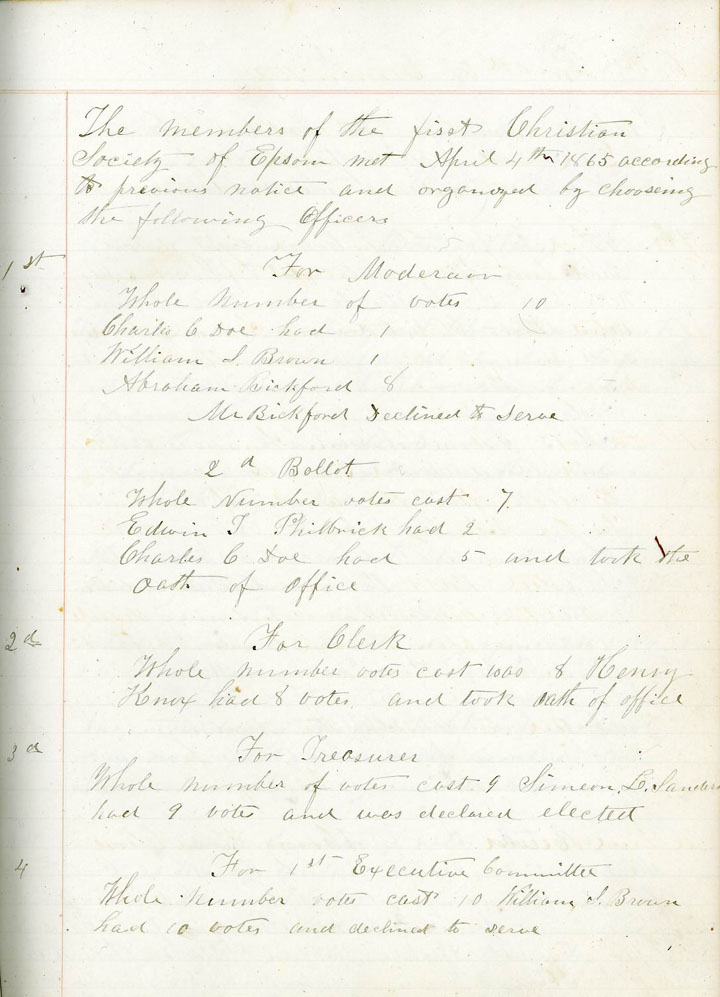 The members of the first Christian
Society of Epsom met April 4th 1865 according
to previous notice and organized by choosing
the following Officers
1st
For Moderator
Whole Number of votes 10
Charles C Doe had 1
William S. Brown 1
Abraham Bickford 8
Mr Bickford Declined to serve
2d Ballot
Whole Number votes cast 7
Edwin T Philbrick had 2
Charles C Doe had 5 and took the
oath of office
2d
For Clerk
Whole number votes cast was 8 Henry
Knox had 8 votes and took oath of office
3d
For Treasurer
Whole number of votes cast 9 Simeon L. Sanders
had 9 votes and was declared elected
4
For 1st Executive Committee
Whole Number votes cast 10 William S. Brown
had 10 votes and declined to serve